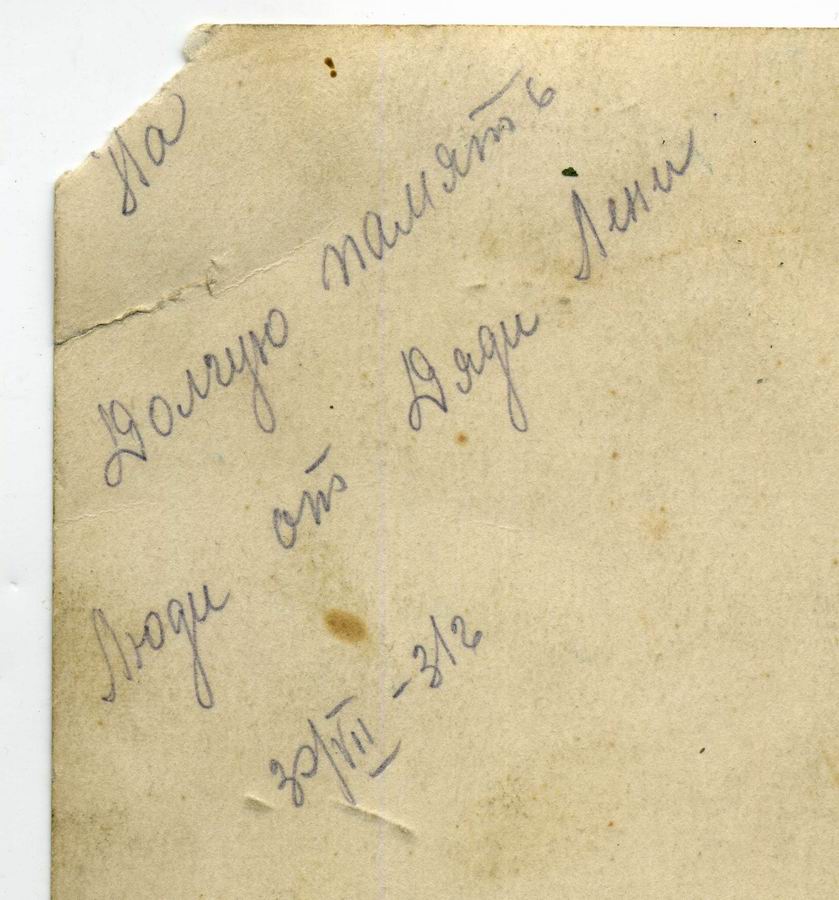 На
Долгую память
Люди от Дяди Лени
30/VII - 31г